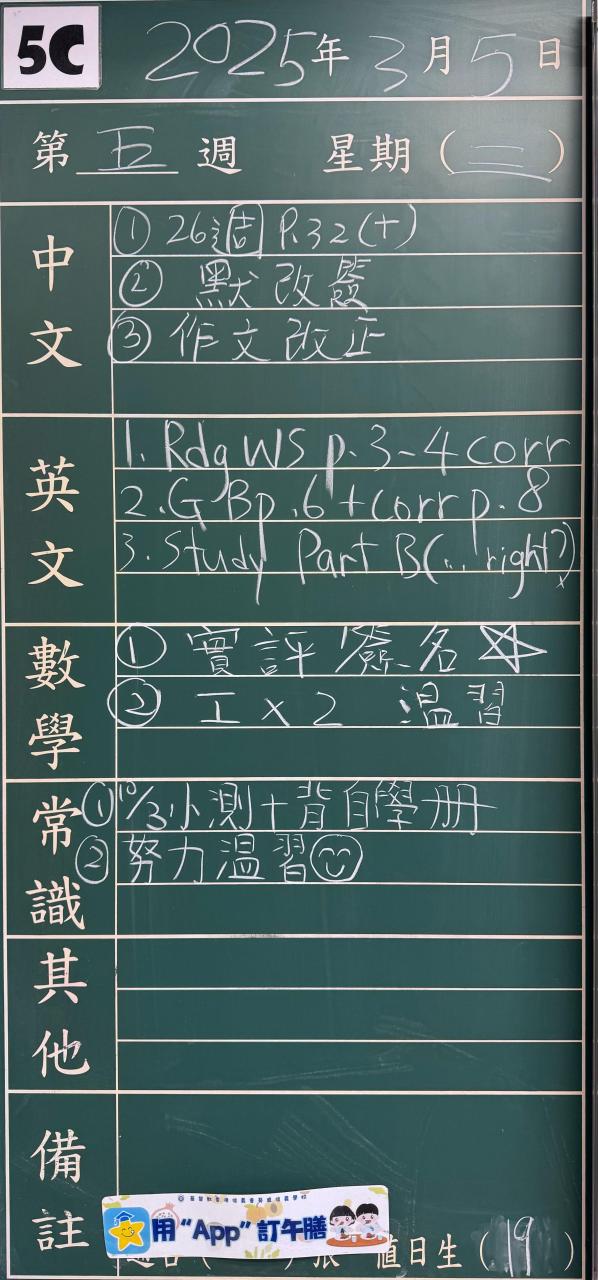 5C 2025年3月5日
第五週 星期(三)
中文
① 26週 P.32(十)
② 默改簽
③ 作文改正
英文
1. Rdg WS p.3-4 corr
2. GB p.6 + corr p.8
3. Study Part B(... right?)
數學
① 實評簽名
② 工x2 溫習
常識
① 10/3小測+背自學冊
② 努力溫習
其他
備註
用“App”訂午膳
張 值日生(19)